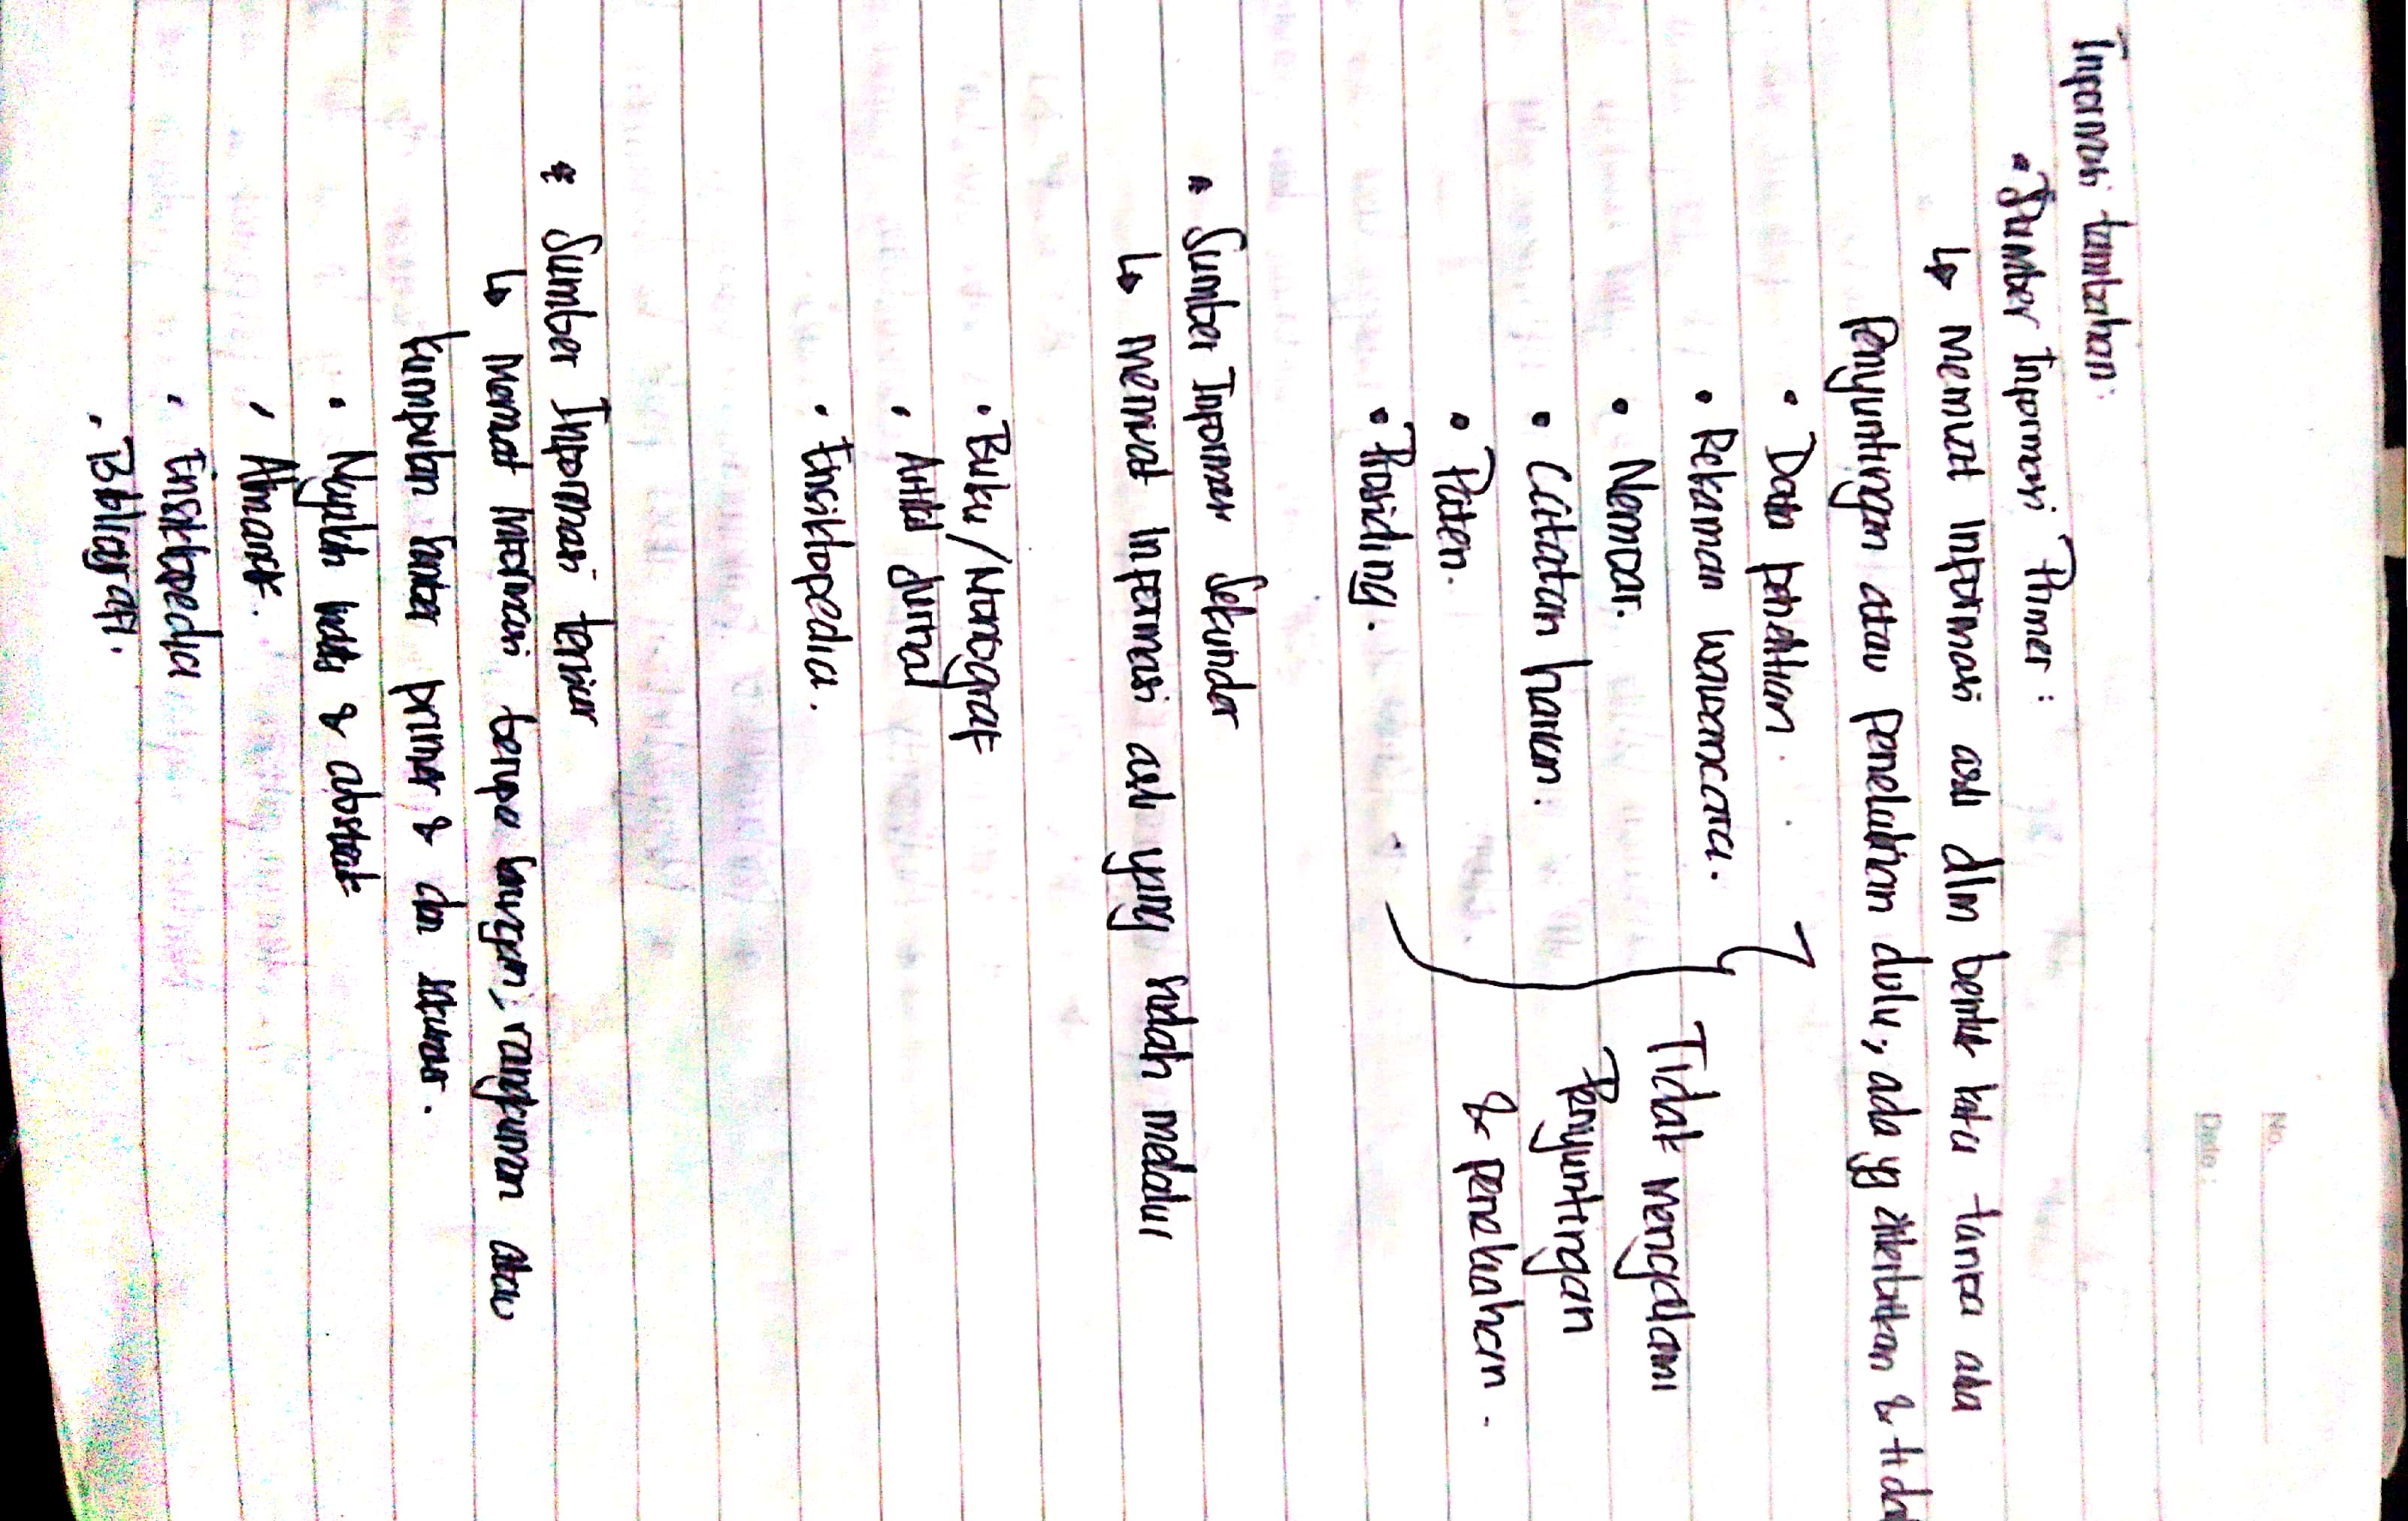 No.
Date:
Informasi tambahan:
• Sumber Informasi Primer:
↳ memuat informasi asli dlm bentuk kata tanpa ada
Penyuntingan atau penelahan dulu, ada yg diterbitkan & tida
• Data penelitian.
• Rekaman wawancara.
• Memoar.
• Catatan harian.
• Paten.
• Prosiding.
Tidak mengalami
Penyuntingan
& penelahan.
* Sumber Informasi Sekunder
↳ memuat informasi asli yang sudah melalui
• Buku/Monograf
• Artikel Jurnal
• Ensiklopedia.
* Sumber Informasi tersier
↳ Memuat informasi berupa rangkuman atau
kumpulan sumber primer & sekunder.
• Majalah indeks & abstrak
• Almanak.
• Ensiklopedia
• Bibliografi.